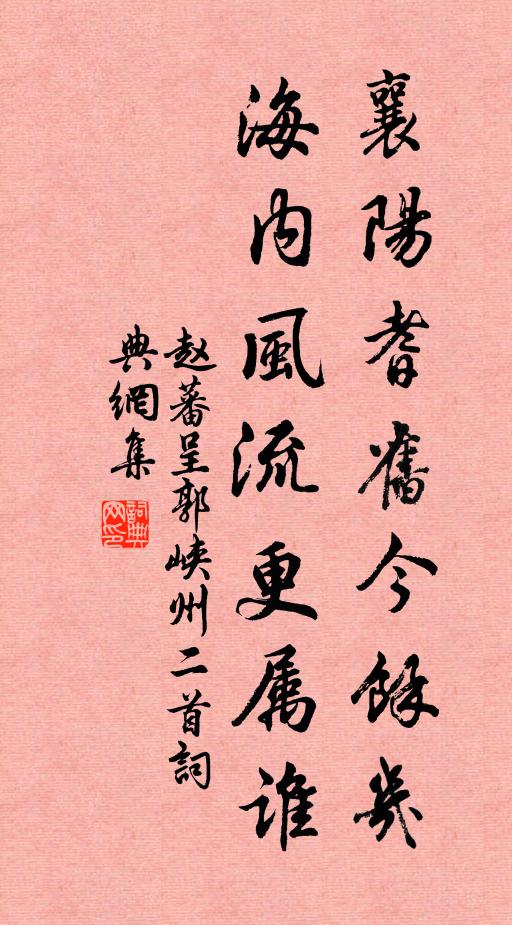 襄陽耆舊今餘幾
海内風流更属誰
赵蕃呈郭峡州二首詞
典網集
詞典网印